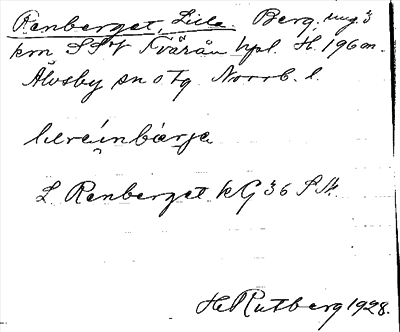 Renberget, Lille. Berg. ung. 3
km SSV Tvärån hpl. H. 196 m.
Älvsby sn o Tg. Norrb. l.
L Renberget kG 36 SSt.
H. Rutberg 1928.